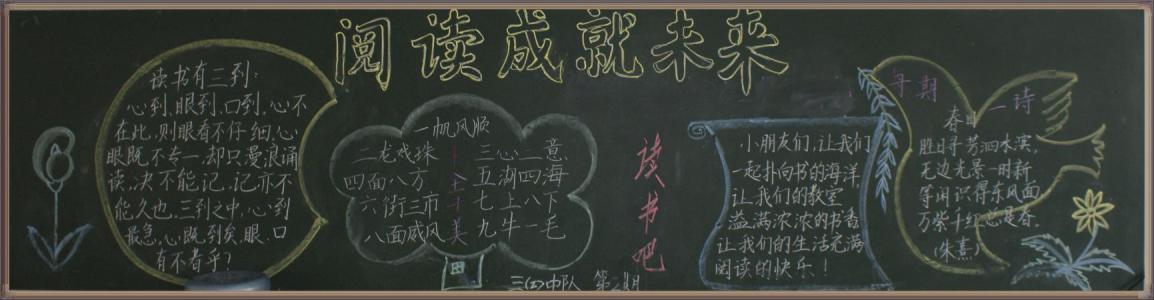 阅读成就未来
读书有三到：
心到，眼到，口到，心不
在此，则眼看不仔细，心
眼既不专一，却只漫浪诵
读，决不能记，记亦不
能久也。三到之中，心到
最急。心既到矣，眼、口
有不看乎？
一帆风顺
二龙戏珠
三心二意
四面八方
五湖四海
六街三市
七上八下
八面威风
九牛一毛
十全十美
三(2)中队 第2期
读书吧
小朋友们，让我们
一起扑向书的海洋，
让我们的教室
溢满浓浓的书香
让我们的生活充满
阅读的快乐！
每期一诗
春日
胜日寻芳泗水滨，
无边光景一时新。
等闲识得东风面，
万紫千红总是春。
(朱熹)